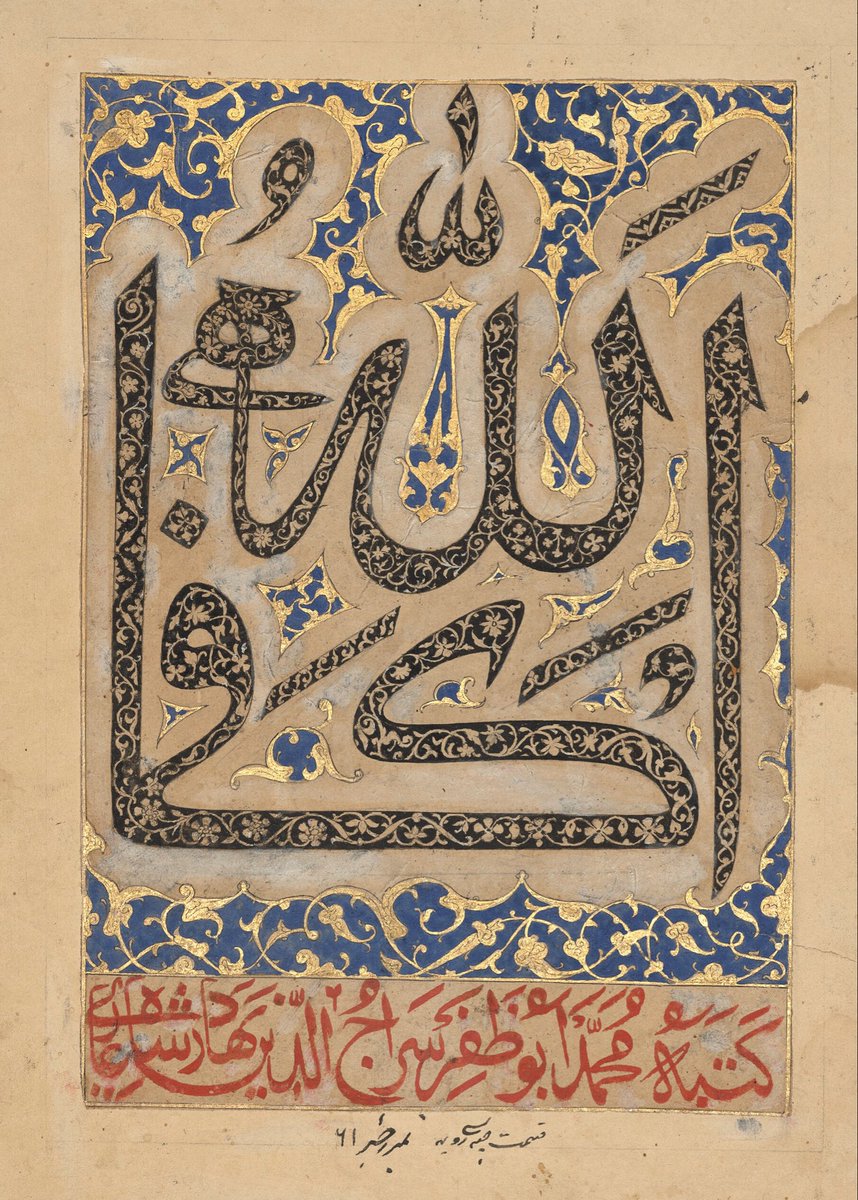 اَللّٰهُ كَفَا
كَتَبَهُ مُحَمَّد اَبُو ظَفَر سَرَاجُ الدِّين بَهَادر شَاه غَازِي
قیمت روپیه نمبر ٦١